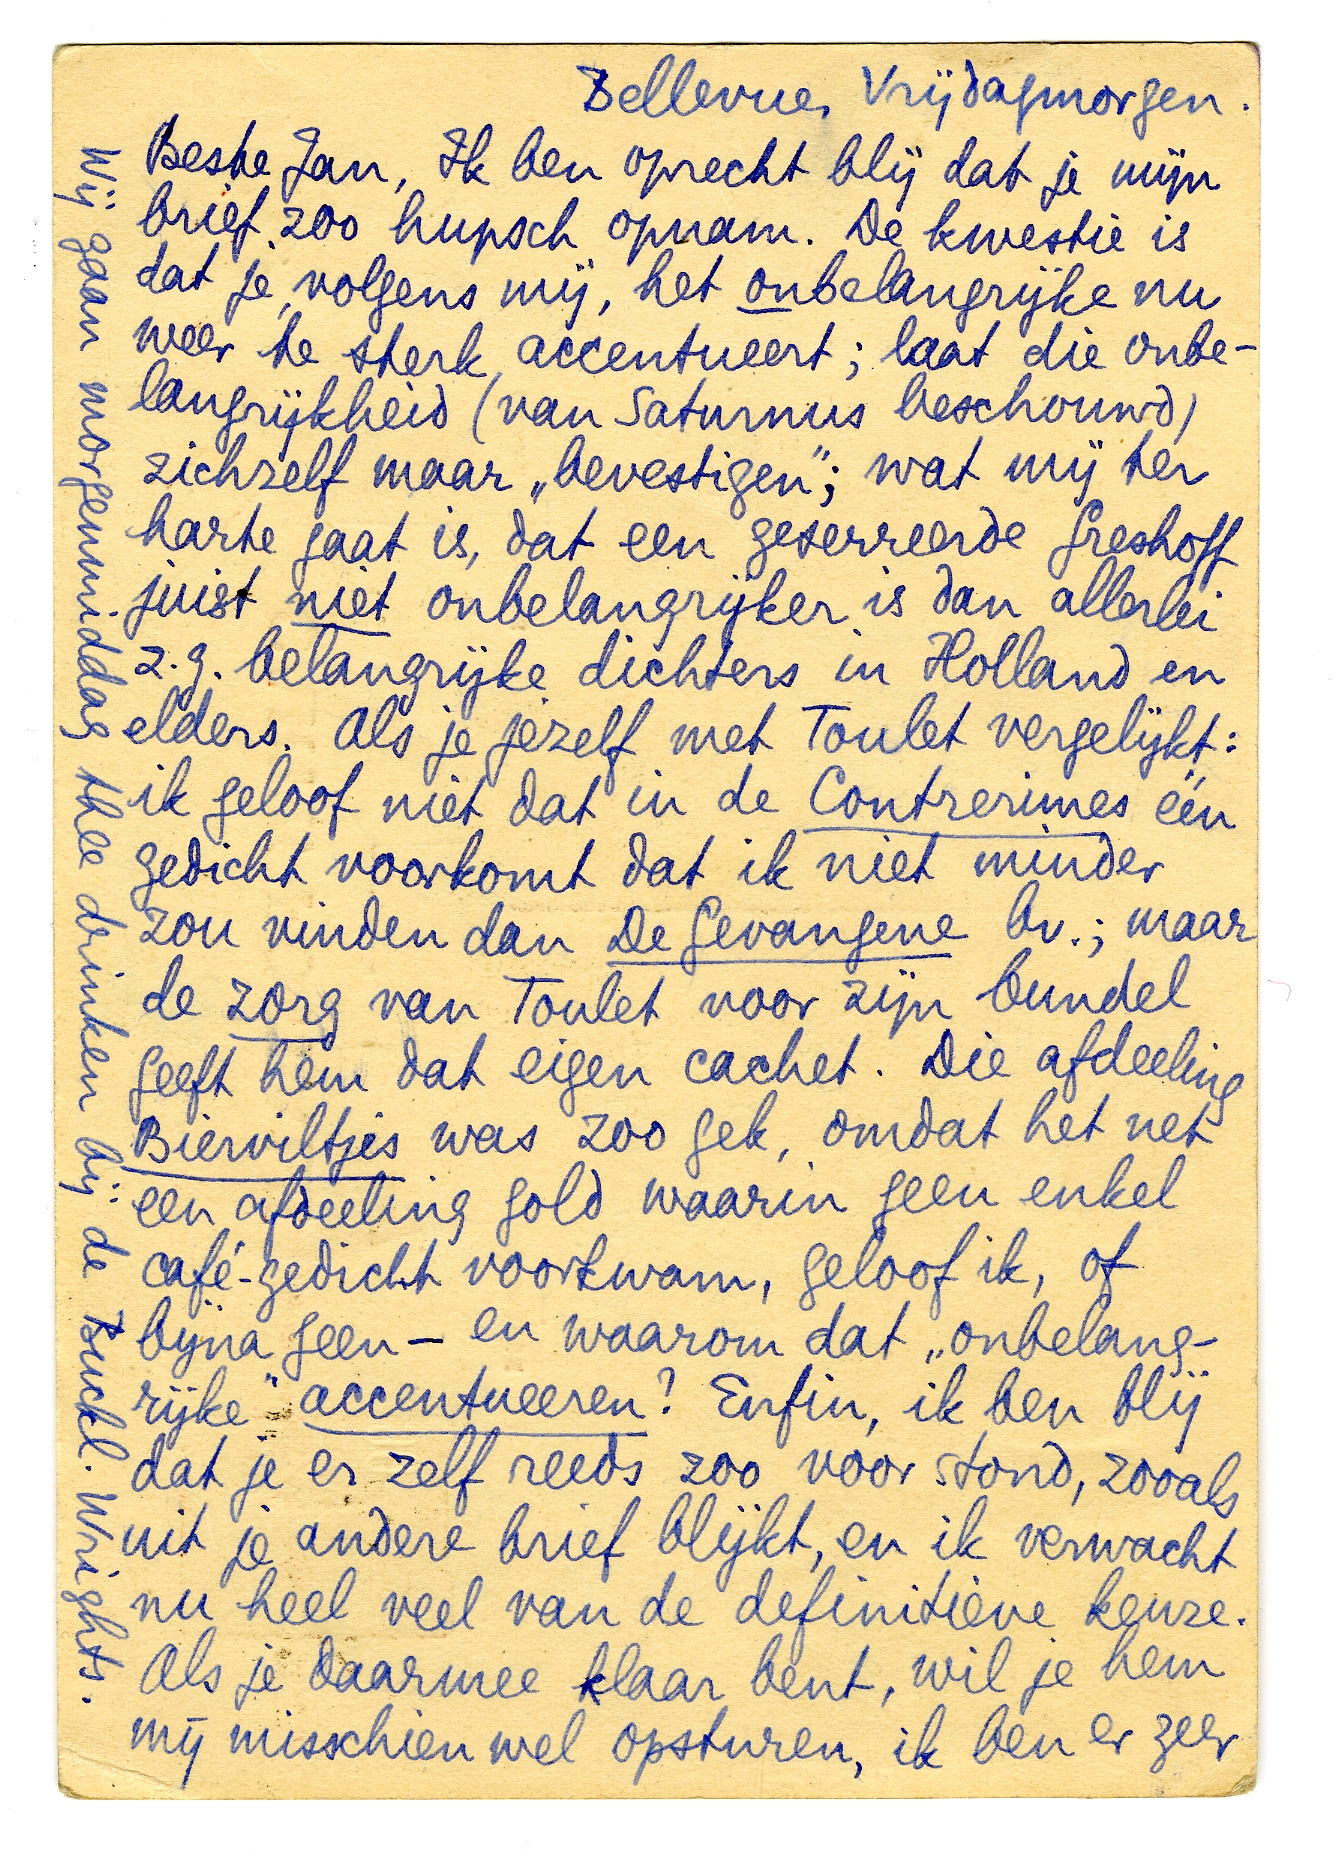 Bellevue, Vrijdagmorgen.
Beste Jan, Ik ben oprecht blij dat je mijn
brief zoo hupsch opnam. De kwestie is
dat je, volgens mij, het onbelangrijke nu
weer te sterk accentueert; laat die onbe-
langrijkheid (van Saturnus beschouwd)
zichzelf maar „bevestigen”; wat mij ter
harte gaat is, dat een geserreerde Greshoff
juist niet onbelangrijker is dan allerlei
z.g. belangrijke dichters in Holland en
elders. Als je jezelf met Toulet vergelijkt:
ik geloof niet dat in de Contrerimes één
gedicht voorkomt dat ik niet minder
zou vinden dan De Gevangene bv.; maar
de zorg van Toulet voor zijn bundel
geeft hem dat eigen cachet. Die afdeeling
Bierviltjes was zoo gek, omdat het net
een afdeeling gold waarin geen enkel
café-gedicht voorkwam, geloof ik, of
bijna geen — en waarom dat „onbelang-
rijke” accentueeren? Enfin, ik ben blij
dat je er zelf reeds zoo voor stond, zooals
uit je andere brief blijkt, en ik verwacht
nu heel veel van de definitieve keuze.
Als je daarmee klaar bent, wil je hem
mij misschien wel opsturen, ik ben er zeer
Wij gaan morgenmiddag thee drinken bij de Buckl. Wrights.